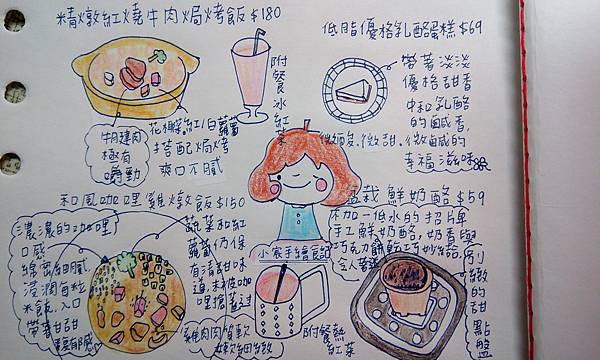 精燉紅燒牛肉焗烤飯 $180
牛腱肉
極有
嚼勁
花椰菜紅/白蘿蔔
搭配焗烤
爽口不膩
附餐冰紅茶
低脂優格乳酪蛋糕 $69
帶著淡淡
優格甜香
中和乳酪
的鹹香,
微酸.微甜.微鹹的
幸福滋味
和風咖哩雞燉飯 $150
濃濃的咖哩
口感
綿密細膩,
浸潤每粒
米飯,入口
帶著甜甜
蔬菜和紅
蘿蔔仍保
有清甜味
道,未被咖
哩搶蓋過
雞肉肉質軟
嫩細緻
小宸手繪食記
附餐熱
紅茶
盆栽鮮奶酪 $59
不加一低水的招牌
手工鮮奶酪,奶香與
巧克力餅乾巧妙結
合
令人驚
別
緻
的
甜
點
盤